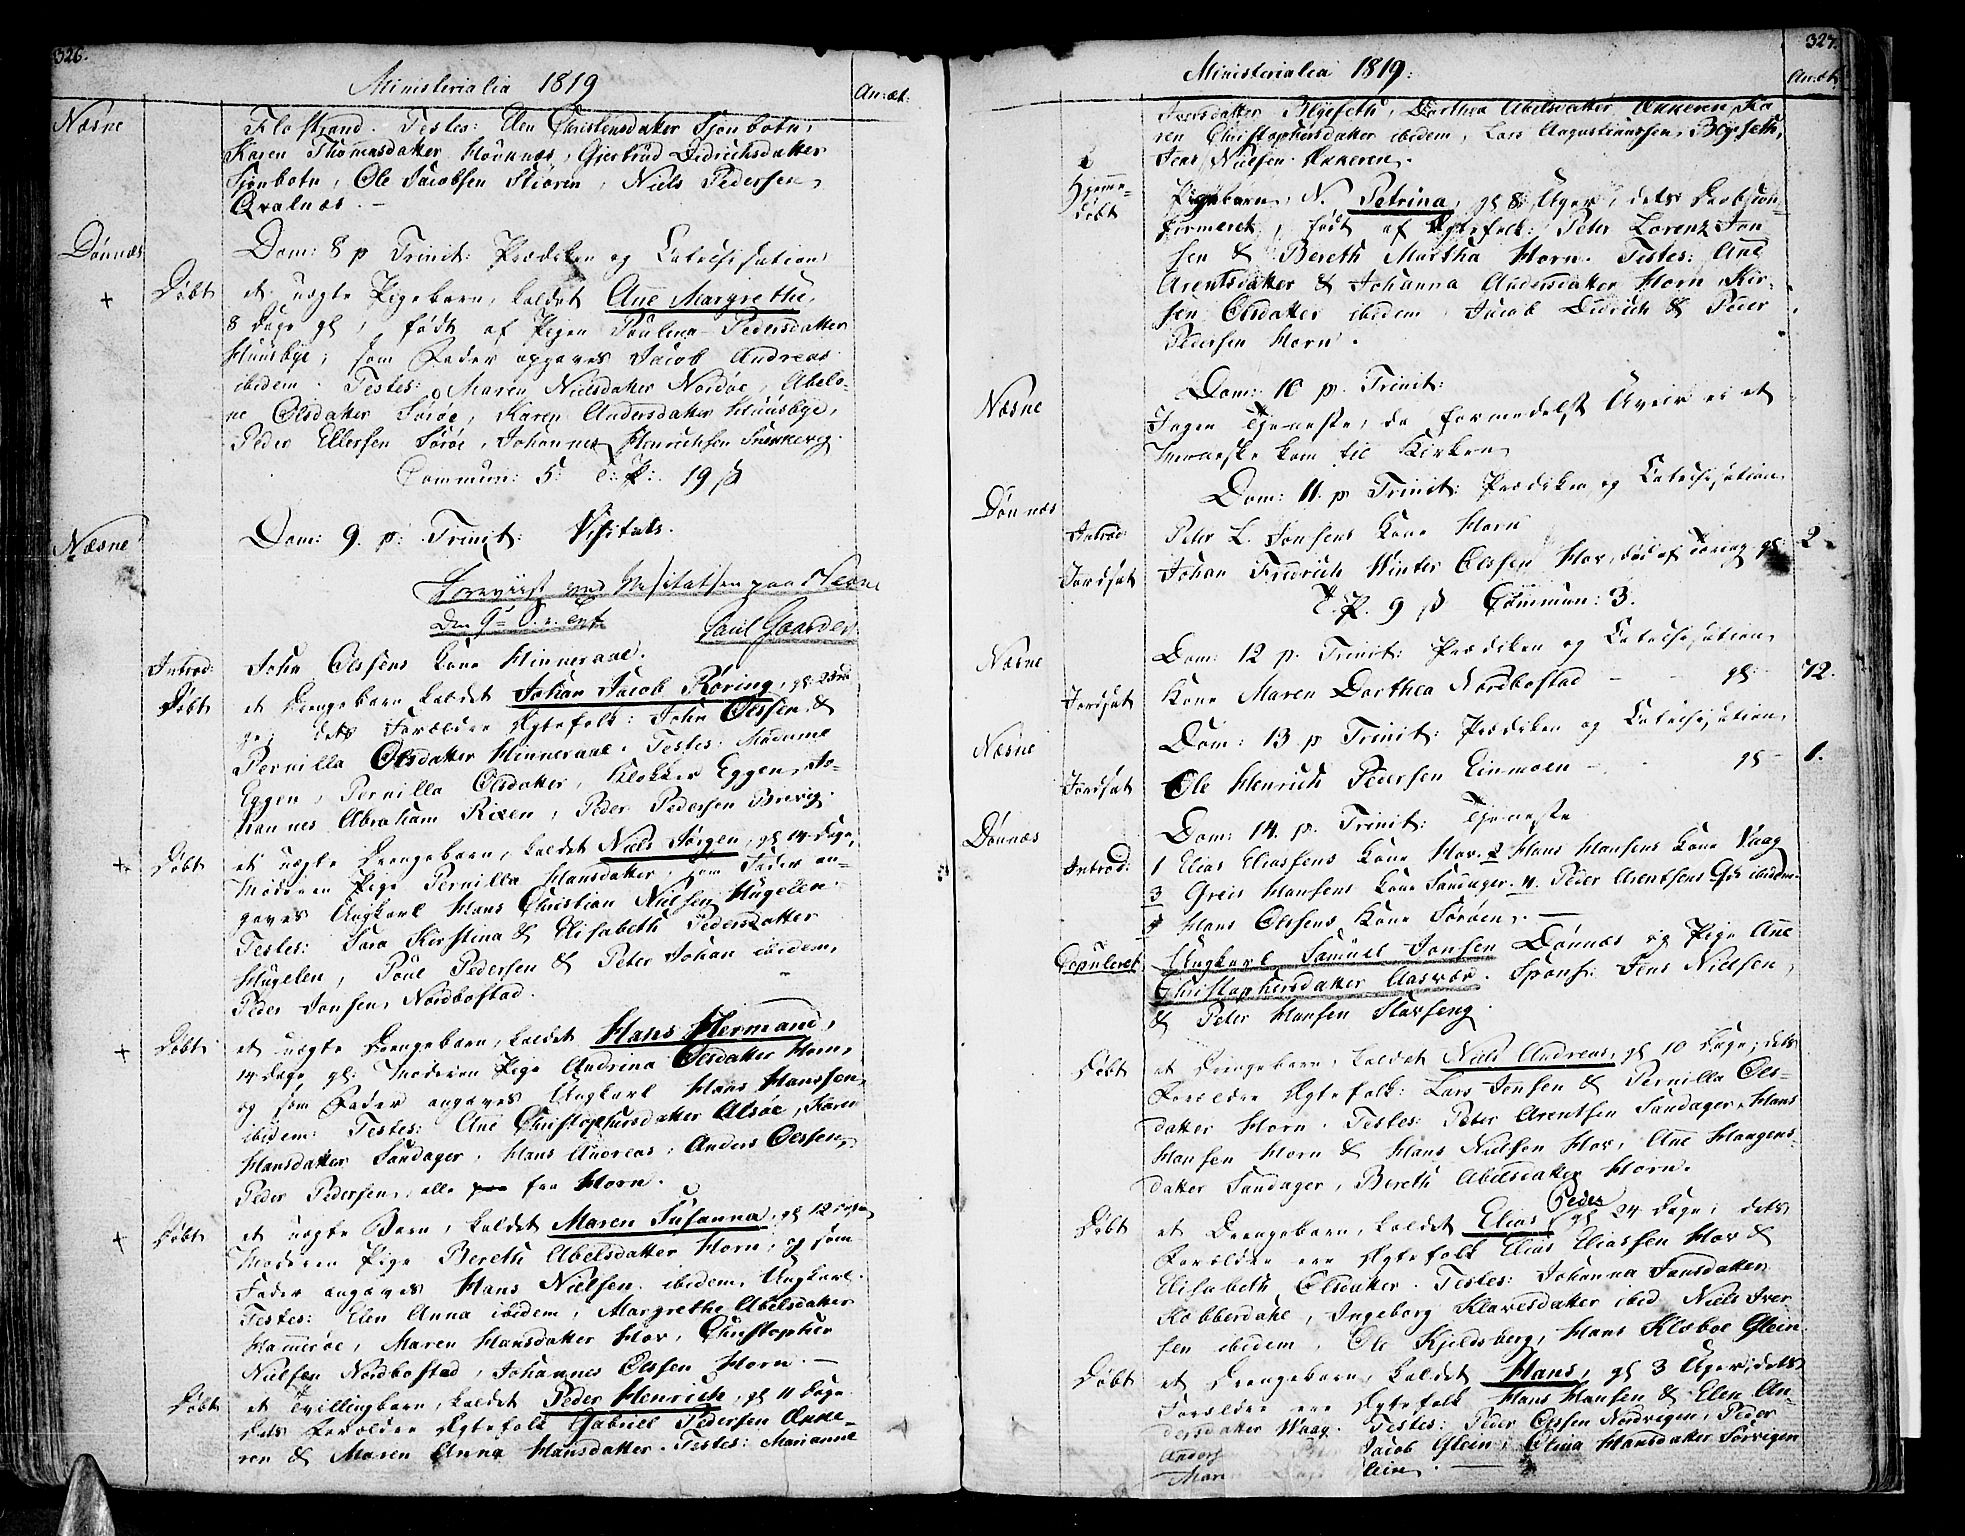 326.
Ministerialia 1819
An: æt:
Næsne
Flostrand. Testes: Elen Christensdatter Sjonbotn,
Karen Thomasdatter Hornnæs, Gjertrud Didrichsdatter
Sjonbotn, Ole Jacobsen Stioren, Niels Pedersen
Qvalnæs. –
Dønnæs
Dom: 8 p Trinit: Prædiken og Catechisation
+ Døbt et uægte Pigebarn, kaldet Ane Margrethe,
8 Dage gl, født af Pigen Paulina Pedersdatter
Huusbye, som Fader opgaves Jacob Andreas
ibidem. Testes: Maren Nielsdatter Nordøe, Abelo-
ne Olsdatter Sørøe, Karen Andersdatter Huusbye,
Peder Ellersen Sørøe, Johannes Henrichsen Snekkevig.
Commun: 5. T: P: 19 ß
Næsne
Dom: 9. p: Trinit: Visitats.
Foreviist ved Visitatsen paa Næsne
Poul Gaarder
Introd: John Olssens Kone Hinneraae.
Døbt et Drengebarn kaldet Johan Jacob Røring, gl: 23 Da
ge, dets Forældre Ægtefolk: John Olssen &
Pernilla Olsdatter Hinneraae. Testes: Madame
Eggen, Pernilla Olsdatter, Klokker Eggen, Jo-
hannes Abraham Rixen, Peder Pedersen Brevig.
+ Døbt et uægte Drengebarn, kaldet Niels Jørgen, gl 14 Dage,
Moderen Pige Pernilla Hansdatter, som Fader an-
gaves Ungkarl Hans Christian Nielsen Hugelen.
Testes: Sara Kirstina & Elisabeth Pedersdatter
Hugelen, Poul Pedersen & Peter Johan ibidem,
Peder Jonsen, Nordbostad.
+ Døbt et uægte Drengebarn, kaldet Hans Hermand,
14 Dage gl: Moderen Pige Andrina Olsdatter Horn,
og som Fader angaves Ungkarl Hans Hanssen,
ibidem: Testes: Ane Christophersdatter Alsøe, Karen
Hansdatter Sandager, Hans Andreas, Anders Olssen,
Peder Pedersen, alle fra Horn.
+ Døbt et uægte Barn, kaldet Maren Susanna, gl 12 Dage
Moderen Pige Bereth Abelsdatter Horn, og som
Fader angaves Hans Nielsen ibidem, Ungkarl.
Testes: Elen Anna ibidem, Margrethe Abelsdatter
Hammerøe, Maren Hansdatter Hov, Christopher
Nielsen Nordbostad, Johannes Olssen Horn. –
Døbt et Tvillingbarn, kaldet Peder Henrich, gl 11 Dage
dets Forældre Ægtefolk Gabriel Pedersen Anne-
ren & Maren Anna Hansdatter. Testes: Marianne
327.
Ministerialia 1819:
An: æt:
Iversdatter Blyeseth, Dorthea Abelsdatter Anneren, Ka
ren Christophersdatter ibidem, Lars Augustinussen, Blyeseth,
Jens Nielsen Anneren.
Hjemme-
døbt Pigebarn, N. Petrina, gl 8 Uger, dets Daab con-
firmeret, født af Ægtefolk: Peter Lorenz Jon
sen & Bereth Martha Horn. Testes: Ane
Arentsdatter & Johanna Andersdatter Horn, Kir-
sen Olsdatter ibidem, Jacob Didrich & Peder
Pedersen Horn.
Næsne
Dom: 10 p. Trinit:
Ingen Tjeneste, da formedelst Uveir ei et
Menneske kom til Kirken
Dønnæs
Dom: 11. p Trinit: Prædiken og Catechisation
Introd: Peter L. Jonsens Kone Horn
Jordsat Johan Fredrich Winter Olssen Hov, gl: 2
T. P. 9 ß Commun: 3.
Næsne
Dom: 12 p. Trinit: Prædiken og Catechisation,
Jordsat Kone Maren Dorthea Nordbostad – – gl: – 72.
Næsne
Dom: 13 p Trinit: Prædiken og Catechisation,
Jordsat Ole Henrich Pedersen Einmoen – – gl – 1.
Dønnæs
Dom: 14. p. Trinit: Tjeneste
Introd: 1 Elias Eliassens Kone Hov. 2 Hans Hansens Kone Vaag
3 Greis Hansens Kone Sandager. 4. Peder Arentsens ibidem.
Hans Olssens Kone Sørøen. –
Copuleret Ungkarl Samuel Jonsen Dønnæs og Pige Ane
Christophersdatter Aasvær. Sponsr: Jens Nielsen,
& Peter Hansen Slavseng.
Døbt et Drengebarn, kaldet Niels Andreas, gl 10 Dage; dets
Forældre Ægtefolk: Lars Jonsen & Pernilla Ols-
datter Horn. Testes: Peter Arentsen Sandager, Hans
Hansen Horn & Hans Nielsen Hov, Ane Haagens-
datter Sandager, Bereth Abelsdatter Horn.
Døbt et Drengebarn, kaldet Elias Peder gl 24 Dage; dets
Forældre ere Ægtefolk Elias Eliassen Hov &
Elisabeth Olsdatter. Testes: Johanna Jonsdatter
Kobberdahl, Ingeborg Klavesdatter ibid Niels Iver
sen ibidem, Ole Kjeldsberg, Hans Kloboe Glein.
Døbt et Drengebarn, kaldet Hans, gl 3 Uger; dets
Forældre ere Ægtefolk Hans Hansen & Elen An-
dersdatter Waag. Testes: Peder Olssen Nordvigen, Peder
Anders Jacob Glein, Olina Hansdatter Sørvigen
Maren Glein. –